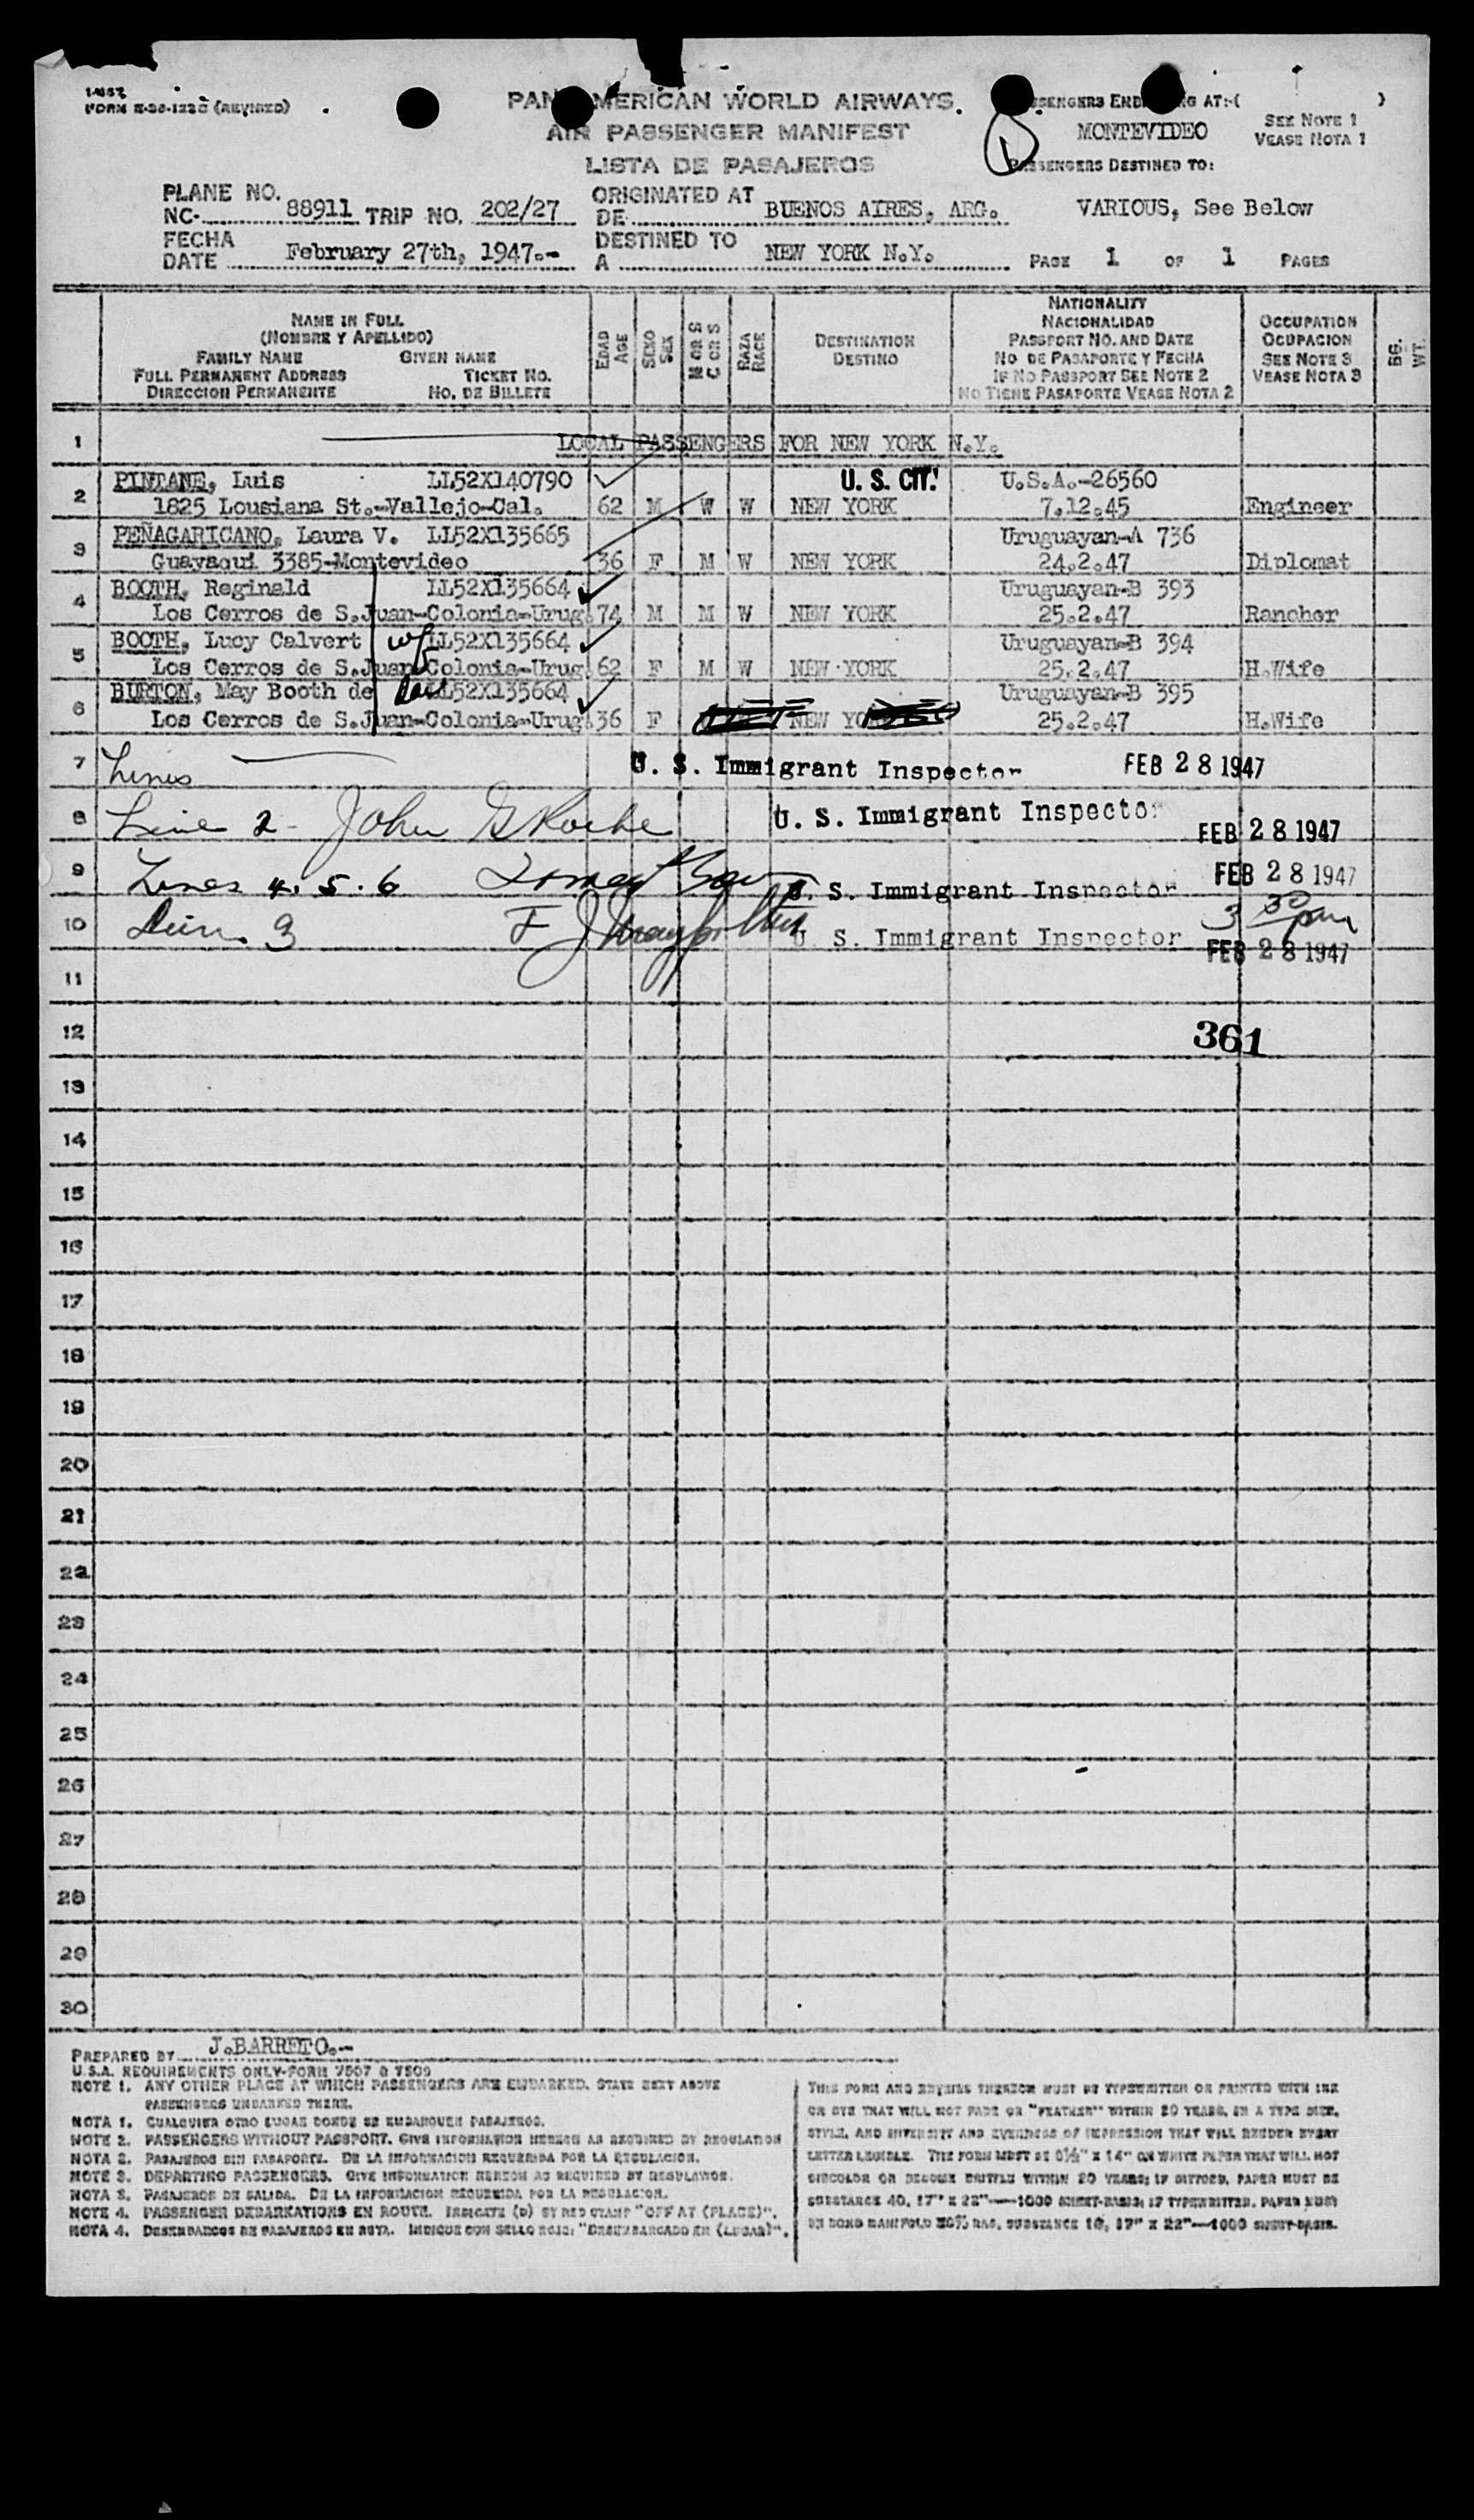 1-462
FORM E-30-122S (REVISED)
PAN AMERICAN WORLD AIRWAYS.
AIR PASSENGER MANIFEST
LISTA DE PASAJEROS
AT:-( )
MONTEVIDEO
SEE NOTE 1
VEASE NOTA 1
PASSENGERS DESTINED TO:
PLANE NO.
NC. 88911 TRIP NO. 202/27
ORIGINATED AT
DE BUENOS AIRES, ARG.
VARIOUS, See Below
FECHA
DATE February 27th, 1947.-
DESTINED TO
A NEW YORK N.Y.
PAGE 1 OF 1 PAGES
NAME IN FULL
(NOMBRE Y APELLIDO)
FAMILY NAME GIVEN NAME
FULL PERMANENT ADDRESS TICKET NO.
DIRECCION PERMANENTE NO. DE BILLETE
EDAD
AGE
SEXO
SEX
M OR S
C OR S
RAZA
RACE
DESTINATION
DESTINO
NATIONALITY
NACIONALIDAD
PASSPORT NO. AND DATE
NO DE PASAPORTE Y FECHA
IF NO PASSPORT SEE NOTE 2
NO TIENE PASAPORTE VEASE NOTA 2
OCCUPATION
OCUPACION
SEE NOTE 3
VEASE NOTA 3
BG.
WT.
1 LOCAL PASSENGERS FOR NEW YORK N.Y.
PINTANE, Luis LL52X140790 U. S. CIT. U.S.A.-26560
2 1825 Lousiana St.-Vallejo-Cal. 62 M W W NEW YORK 7.12.45 Engineer
PEÑAGARICANO, Laura V. LL52X135665 Uruguayan-A 736
3 Guayaqui 3385-Montevideo 36 F M W NEW YORK 24.2.47 Diplomat
BOOTH, Reginald LL52X135664 Uruguayan-B 393
4 Los Cerros de S.Juan-Colonia-Urug. 74 M M W NEW YORK 25.2.47 Rancher
BOOTH, Lucy Calvert wf LL52X135664 Uruguayan-B 394
5 Los Cerros de S.Juan-Colonia-Urug. 62 F M W NEW YORK 25.2.47 H.Wife
BURTON, May Booth de LL52X135664 Uruguayan-B 395
6 Los Cerros de S.Juan-Colonia-Urug. 36 F NEW YO 25.2.47 H.Wife
7 Lines U. S. Immigrant Inspector FEB 28 1947
8 Line 2 - John G Roche U. S. Immigrant Inspector FEB 28 1947
9 Lines 4. 5. 6 U. S. Immigrant Inspector FEB 28 1947
10 Line 3 U. S. Immigrant Inspector 3 30 pm
FEB 28 1947
11
12 361
13
14
15
16
17
18
19
20
21
22
23
24
25
26
27
28
29
30
PREPARED BY J.BARRETO.-
U.S.A. REQUIREMENTS ONLY-FORM 7507 & 7509
NOTE 1. ANY OTHER PLACE AT WHICH PASSENGERS ARE EMBARKED. STATE NEXT ABOVE
PASSENGERS EMBARKED THERE.
NOTA 1. CUALQUIER OTRO LUGAR DONDE SE EMBARQUEN PASAJEROS.
NOTE 2. PASSENGERS WITHOUT PASSPORT. GIVE INFORMATION HEREON AS REQUIRED BY REGULATION
NOTA 2. PASAJEROS SIN PASAPORTE. DE LA INFORMACION REQUERIDA POR LA REGULACION.
NOTE 3. DEPARTING PASSENGERS. GIVE INFORMATION HEREON AS REQUIRED BY REGULATION.
NOTA 3. PASAJEROS DE SALIDA. DE LA INFORMACION REQUERIDA POR LA REGULACION.
NOTE 4. PASSENGER DEBARKATIONS EN ROUTE. INDICATE (D) BY RED STAMP "OFF AT (PLACE)".
NOTA 4. DESEMBARCOS DE PASAJEROS EN RUTA. INDIQUE CON SELLO ROJO: "DESEMBARCADO EN (LUGAR)".
THIS FORM AND ENTRIES THEREON MUST BE TYPEWRITTEN OR PRINTED WITH INK
OR DYE THAT WILL NOT FADE OR "FEATHER" WITHIN 20 YEARS, IN A TYPE SIZE,
STYLE, AND INTENSITY AND EVENNESS OF IMPRESSION THAT WILL RENDER EVERY
LETTER LEGIBLE. THE FORM MUST BE 8½" X 14" ON WHITE PAPER THAT WILL NOT
DISCOLOR OR BECOME BRITTLE WITHIN 20 YEARS; IF DITTOED, PAPER MUST BE
SUBSTANCE 40, 17" X 22"—1000 SHEET-BASIS; IF TYPEWRITTEN, PAPER MUST
BE BOND MANIFOLD 50% RAG, SUBSTANCE 16, 17" X 22"—1000 SHEET-BASIS.